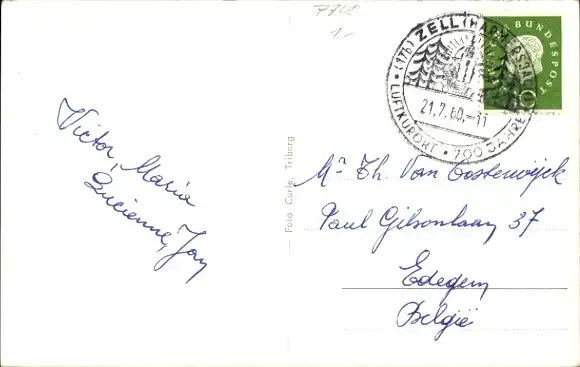 7740
1.-
(17b) ZELL (HARMERSBACH)
21.7.60.-11
LUFTKURORT · 700 JAHRE
BUNDESPOST
10
Victor, Maria
Lucienne, Jan
Foto Carle, Triberg
Mr Th. Van Oosterwijck
Paul Gilsonlaan 37
Edegem
België